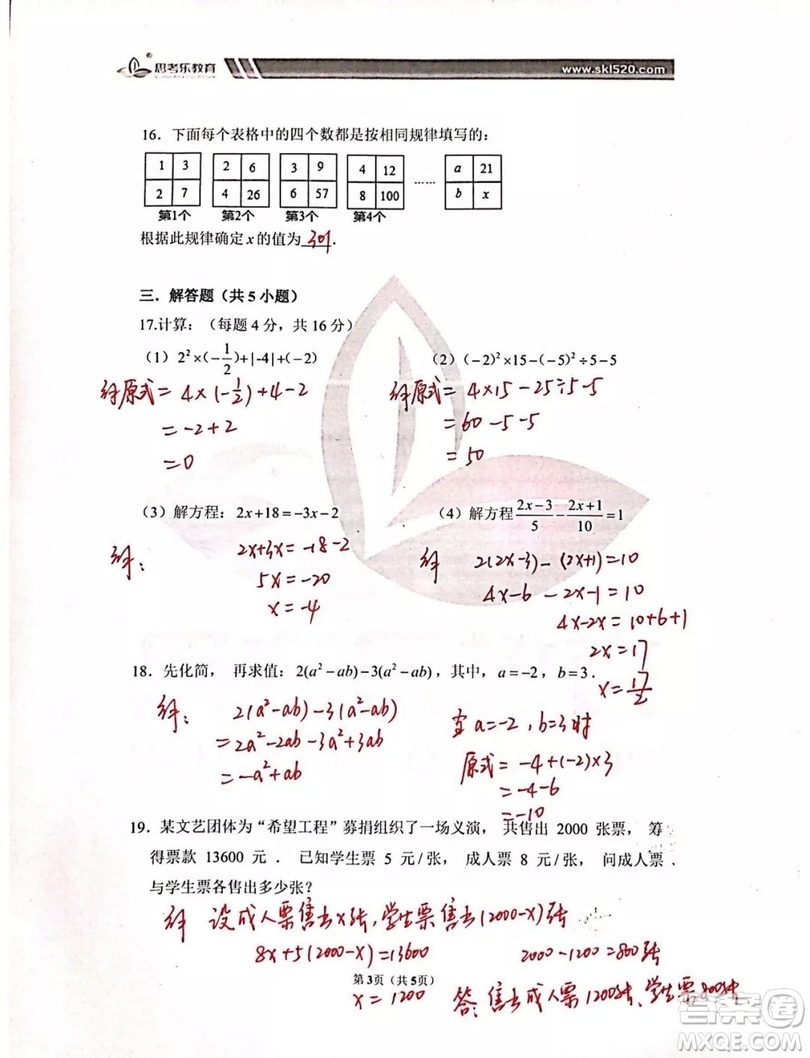 思考乐教育
www.skl520.com
16．下面每个表格中的四个数都是按相同规律填写的：
1 3 2 6 3 9 4 12 …… a 21
2 7 4 26 6 57 8 100 b x
第1个 第2个 第3个 第4个
根据此规律确定 x 的值为 301 .
三．解答题（共 5 小题）
17.计算：（每题 4 分，共 16 分）
（1）2²×(-1/2)+|-4|+(-2) （2）(-2)²×15-(-5)²÷5-5
解原式= 4×(-1/2)+4-2 解原式= 4×15-25÷5-5
= -2+2 = 60-5-5
= 0 = 50
（3）解方程：2x+18=-3x-2 （4）解方程 (2x-3)/5-(2x+1)/10=1
解： 2x+3x=-18-2 解 2(2x-3)-(2x+1)=10
5x=-20 4x-6-2x-1=10
x=-4 4x-2x=10+6+1
2x=17
x=17/2
18．先化简， 再求值：2(a²-ab)-3(a²-ab)，其中，a=-2，b=3．
解： 2(a²-ab)-3(a²-ab) 当a=-2,b=3时
=2a²-2ab-3a²+3ab 原式=-4+(-2)×3
=-a²+ab =-4-6
=-10
19．某文艺团体为“希望工程”募捐组织了一场义演， 共售出 2000 张票， 筹
得票款 13600 元 ．已知学生票 5 元/张， 成人票 8 元/张， 问成人票
与学生票各售出多少张？
解 设成人票售出x张,学生票售出(2000-x)张
8x+5(2000-x)=13600 2000-1200=800张
第 3页（共 5页）
x=1200 答:售出成人票1200张、学生票800张
答案圈
MXQE.COM